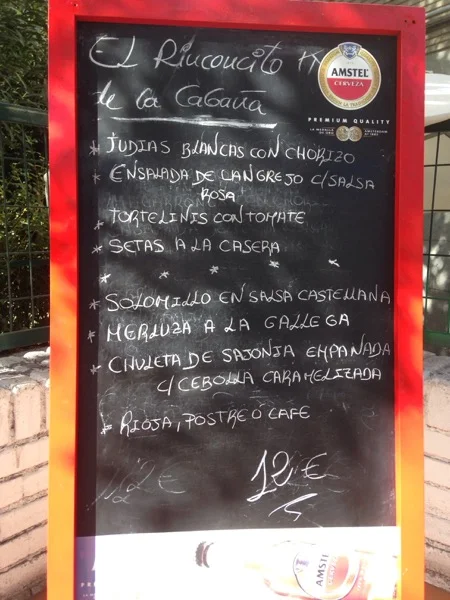 El Rinconcito
de la Cabaña
AMSTEL
CERVEZA
PREMIUM QUALITY
* JUDIAS BLANCAS CON CHORIZO
* ENSALADA DE CANGREJO C/SALSA
ROSA
* TORTELINIS CON TOMATE
* SETAS A LA CASERA
* * * * *
* SOLOMILLO EN SALSA CASTELLANA
* MERLUZA A LA GALLEGA
* CHULETA DE SAJONIA EMPANADA
C/CEBOLLA CARAMELIZADA
* RIOJA, POSTRE O CAFE
12 € 12 €